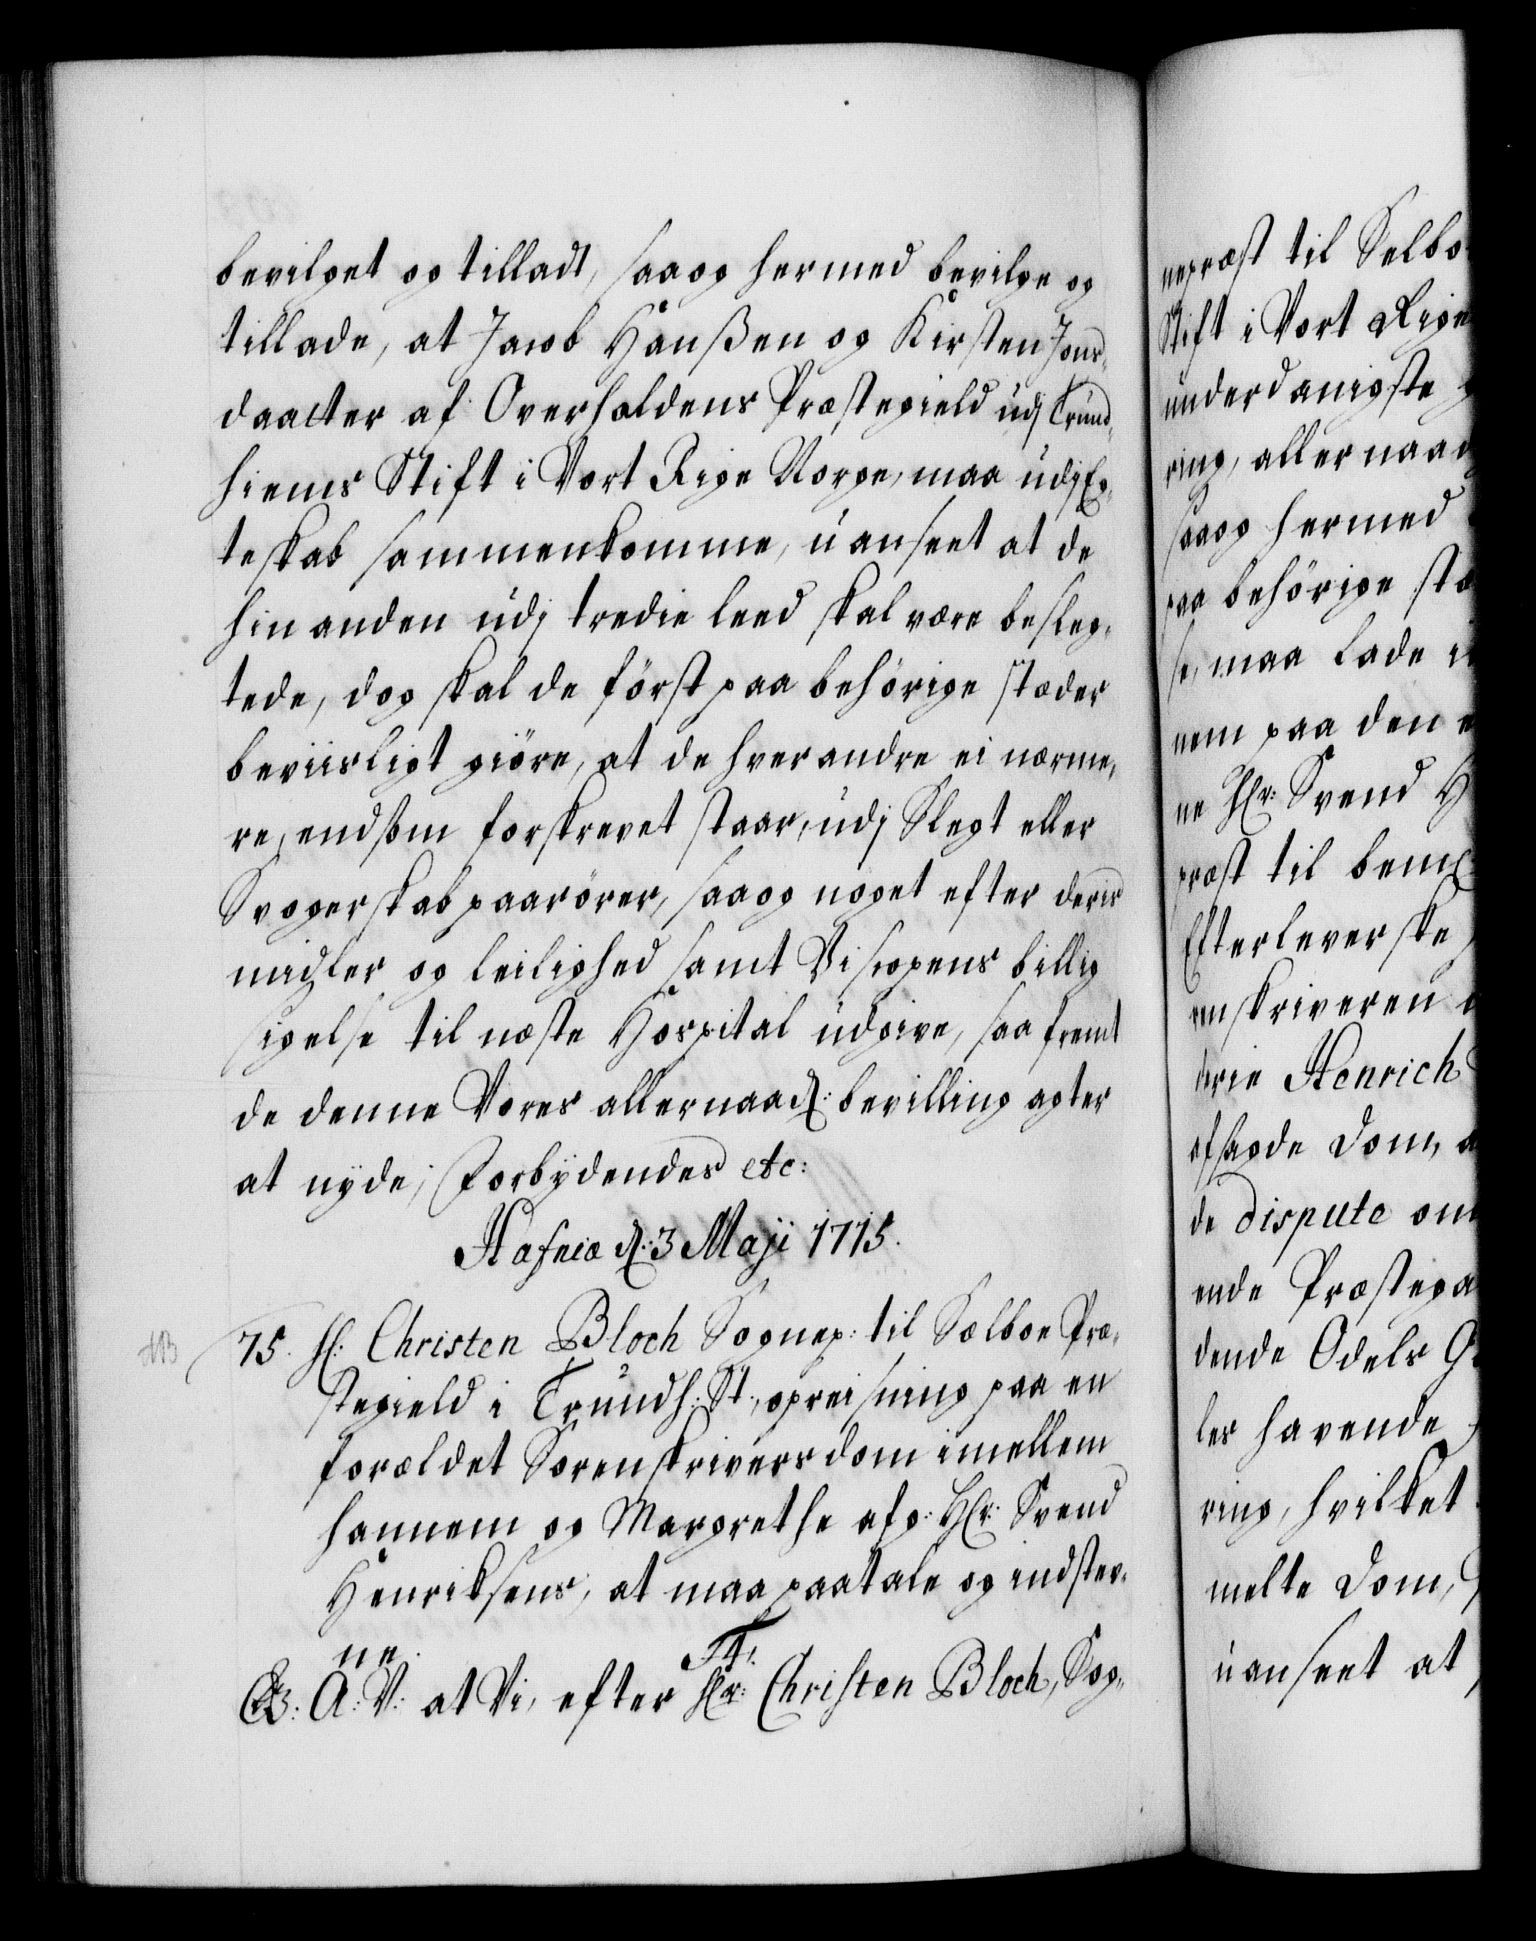 bevilget og tilladt, saa og hermed bevilge og
tillade, at Jacob Hanßen og Kirsten Jons-
daatter af Overhaldens Præstegield udj Trund-
hiems Stift i Vort Rige Norge, maa udj Eg-
teskab sammenkomme, uanseet at de
hinanden udj tredie leed skal være besleg-
tede, dog skal de först paa behörige stæder
beviisligt giöre, at de hverandre ei nærme-
re, endsom forskrevet staar, udj Slegt eller
Svogerskab paarörer, saa og noget efter deris
midler og leilighed samt Biscopens billig
sigelse til næste Hospital udgive, saafremt
de denne Vores allernaad: bevilling agter
at nyde; Forbydendes etc:
Hafniæ d: 3 Maji 1715.
NB 75. H: Christen Bloch Sognep: til Sælboe Præ-
stegield i Trundh: St:, opreisning paa en
forældet Sorenskrivers dom imellem
hannem og Margrethe afg: Hr: Svend
Henriksens, at maa paatale og indstev-
ne.
F4.
G: A: V: at Vi, efter Hr: Christen Bloch, Sog-
nepræst til Selbo
Stift i Vort Rige
underdanigste
ring, allernaad
saa og hermed
paa behörige stæ
se, maa lade i
nem paa den e
ne Hr: Svend H
præst til bem
Efterleverske
renskriveren
derie Henrich
afsagde Dom, a
de dispute om
ende Præstega
dende Odels G
les havende
ring, hvilket
melte Dom,
uanseet at